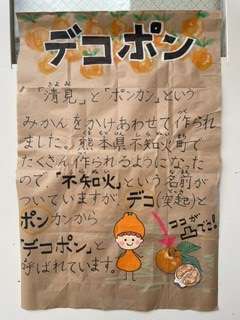 デコポン
「清見」と「ポンカン」という
みかんをかけあわせて作られ
ました。熊本県不知火町で
たくさん作られるようになった
ので「不知火」という名前が
ついていますが、デコ(突起)と
ポンカンから
「デコポン」と
呼ばれています。
ココが
凸でこ!